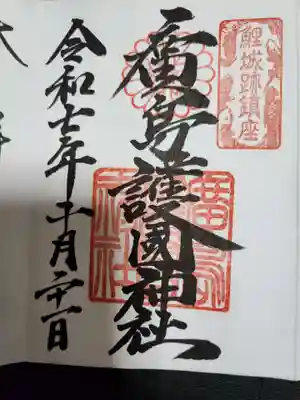 鯉城跡鎮座
廣島護國神社
令和七年十一月二十一日